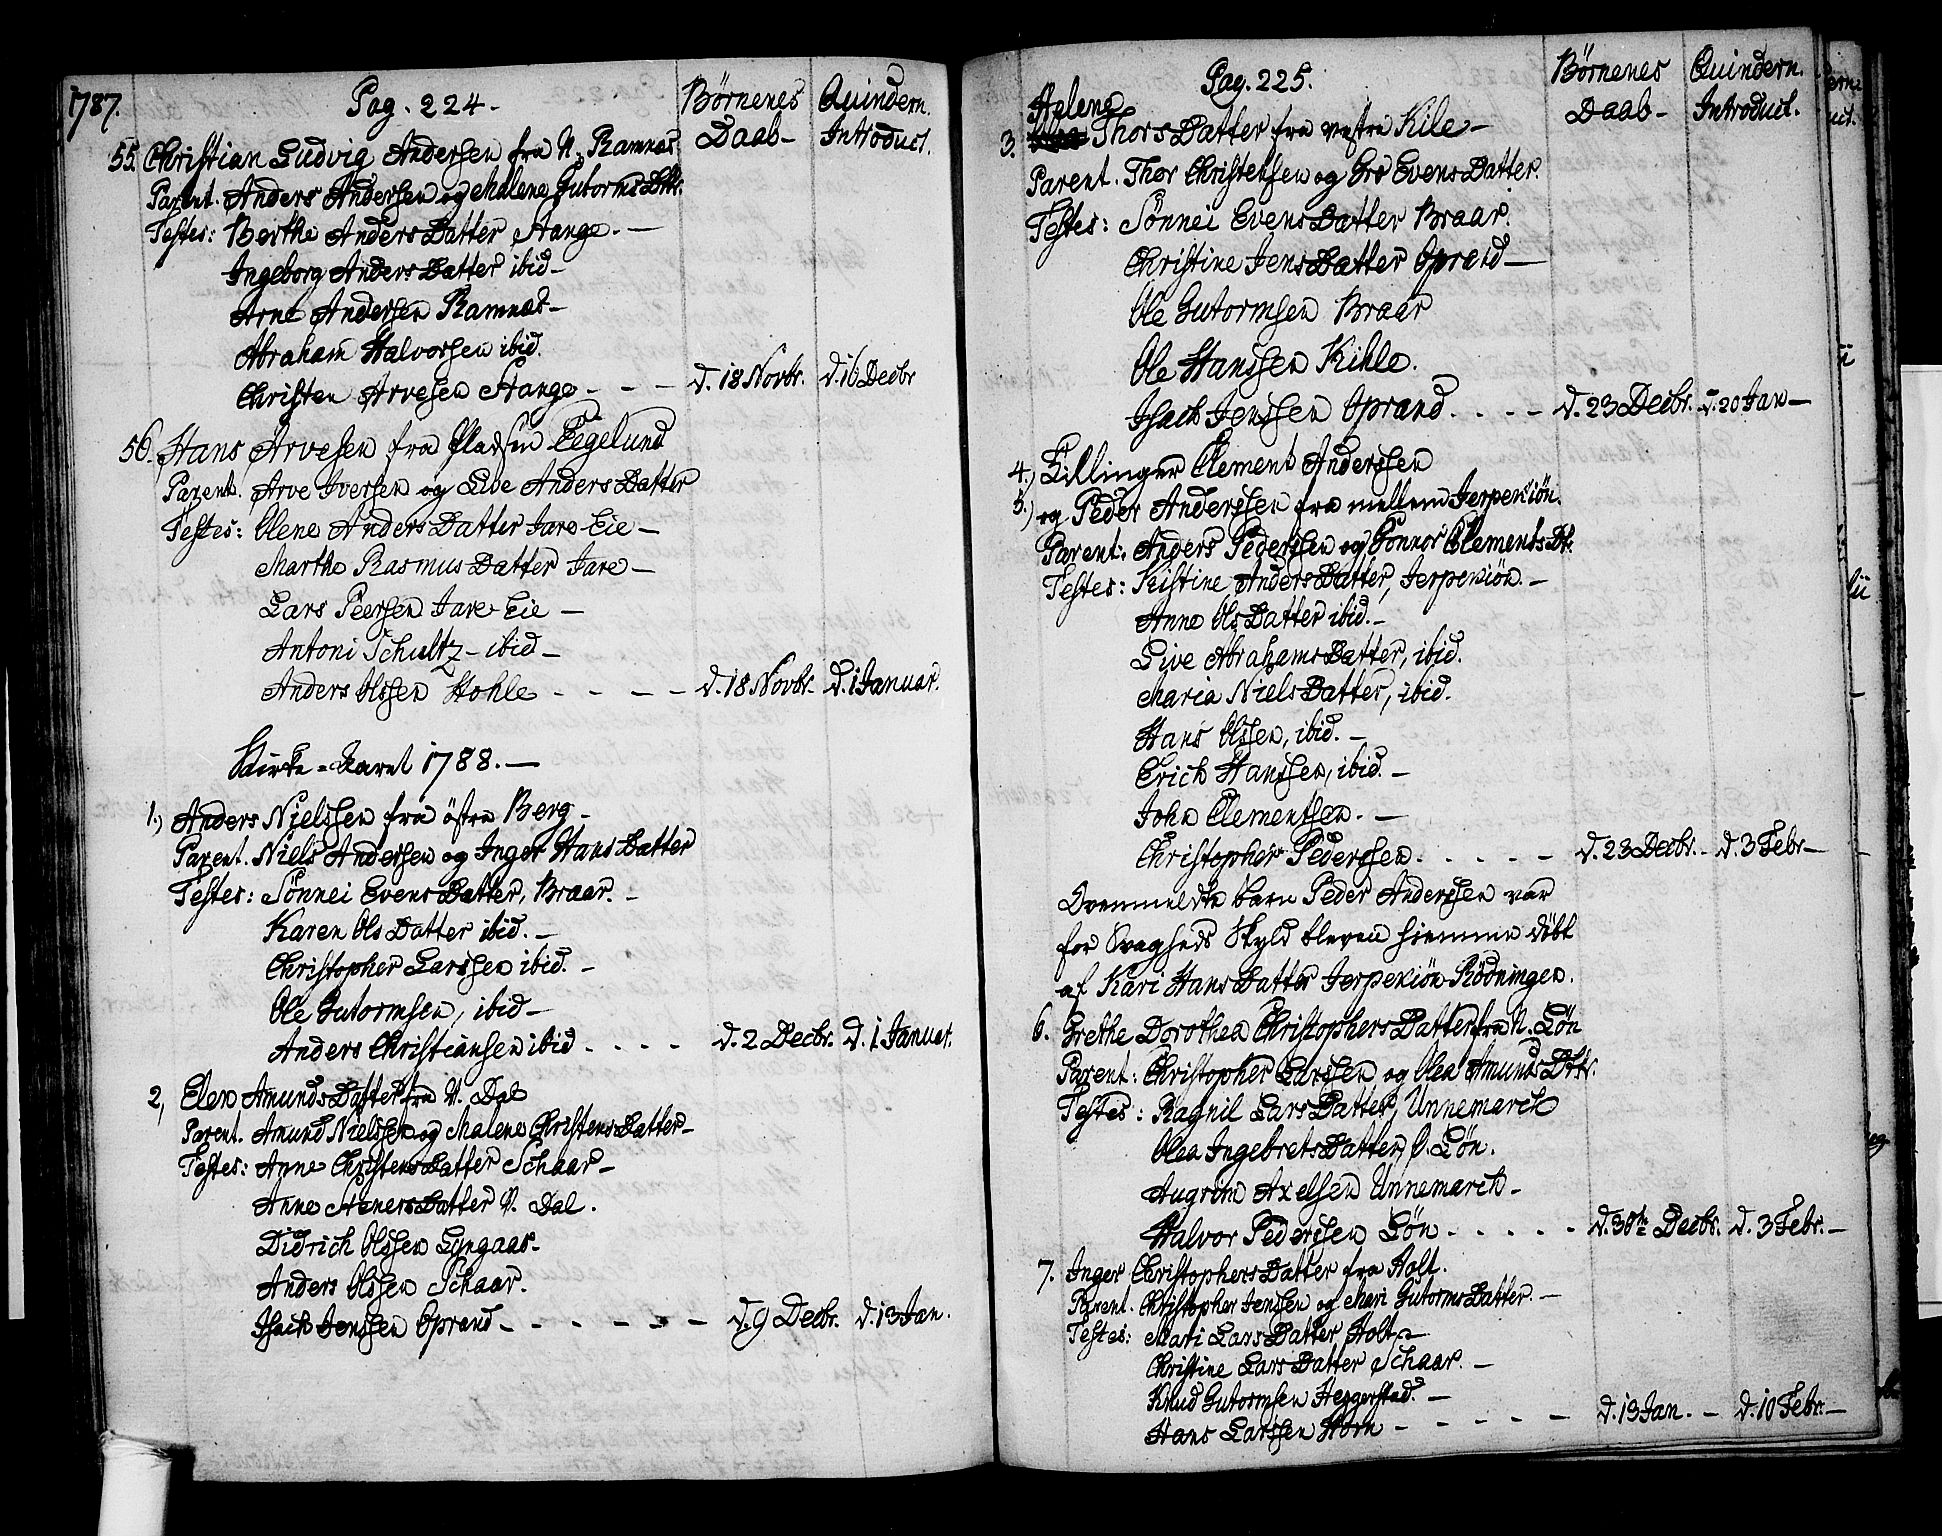 1787.
Pag. 224.
Börnenes Daab-
Quindern. Introduct.
55. Christian Ludvig Andersen fra N. Ramnæs
Parent. Anders Andersen og Malene GutormsDttr.
Testes: Berthe AndersDatter Stange. -
Ingeborg AndersDatter ibid-
Arne Andersen Ramnæs-
Abraham Halvorsen ibid.
Christen Arvesen Stange - - - d. 18 Novbr. d. 16 Decbr
56. Hans Arvesen fra Pladsen Teglund
Parent. Arve Iversen og Live AndersDatter
Testes: Olene AndersDatter Jare Eie-
Marthe RasmusDatter Jare-
Lars Peersen Jare Eie -
Antoni Schultz - ibid-
Anders Olssen Hohle - - - - d. 18 Novbr. d. 1 Januar.
Kirke-Aaret 1788. -
1.) Anders Nielssen fra östre Berg-
Parent. Niels Andersen og Inger HansDatter
Testes: Sönnei EvensDatter, Braar. -
Karen OlsDatter ibid. -
Christopher Larssen ibid. -
Ole Gutormsen, ibid-
Anders Christiansen ibid . . . . d. 2 Decbr. d. 1 Januar.
2, Elen AmundsDatter fra V. Dal
Parent. Amund Nielssen og Malene ChristensDatter-
Testes: Anne ChristensDatter Schaar-
Anne Datter V. Dal.
Didrich Olssen Lyngaas-
Anders Olssen Schaar.
Isach Jenssen Oprand - - - - - - d. 9 Decbr. d. 13 Jan.
Pag. 225.
Börnenes Daab-
Quindern. Introduct.
Helene
3. ThorsDatter fra vestre Kile-
Parent. Thor Christensen og Gro EvensDatter.
Testes: Sönnei EvensDatter Braar.
Christine JensDatter Oprand-
Ole Gutormsen Braar
Ole Hanssen Kihle.
Isach Jenssen Oprand . . . . d. 23 Decbr. d. 20 Jan-
4.) Tillinger Clement Anderssen
5.) og Peder Anderssen fra mellem Jerpekiön.
Parent: Anders Pederssen og Gonnor ClementsDtr.
Testes: Kistine AndersDatter, Jerpekiön. -
Anne OlsDatter ibid. -
Live AbrahamsDatter, ibid.
Maria NielsDatter, ibid.
Hans Olssen, ibid. -
Erich Hanssen, ibid. -
John Clementsen. -
Christopher Pederssen . . . . . d. 23 Decbr. - d. 3 Febr-
Ovenmeldte barn Peder Anderssen var
for Svagheds Skyld bleven hiemme döbt
af Kari HansDatter Jerpekiön Rödningen.
6. Grethe Dorothea ChristophersDatter fra N. Lön
Parent: Christopher Larssen og Olea AmundsDttr.
Testes: Ragnil LarsDatter, Unnemarck
Olea IngebretsDatter, Ø. Lön.
Augrim Axelsen Unnemarck-
Halvor Pederssen Lön . . . . . d. 30te Decbr. d. 3 Febr. -
7. Inger ChristophersDatter fra Holt.
Parent. Christopher Jenssen og Mari GutormsDatter. -
Testes: Mari LarsDatter Holt-
Christine LarsDatter Schaar. -
Knud Gutormsen Heggerstad. -
Hans Larssen Horn - - - - - d. 13 Jan. - d. 10 Febr. -